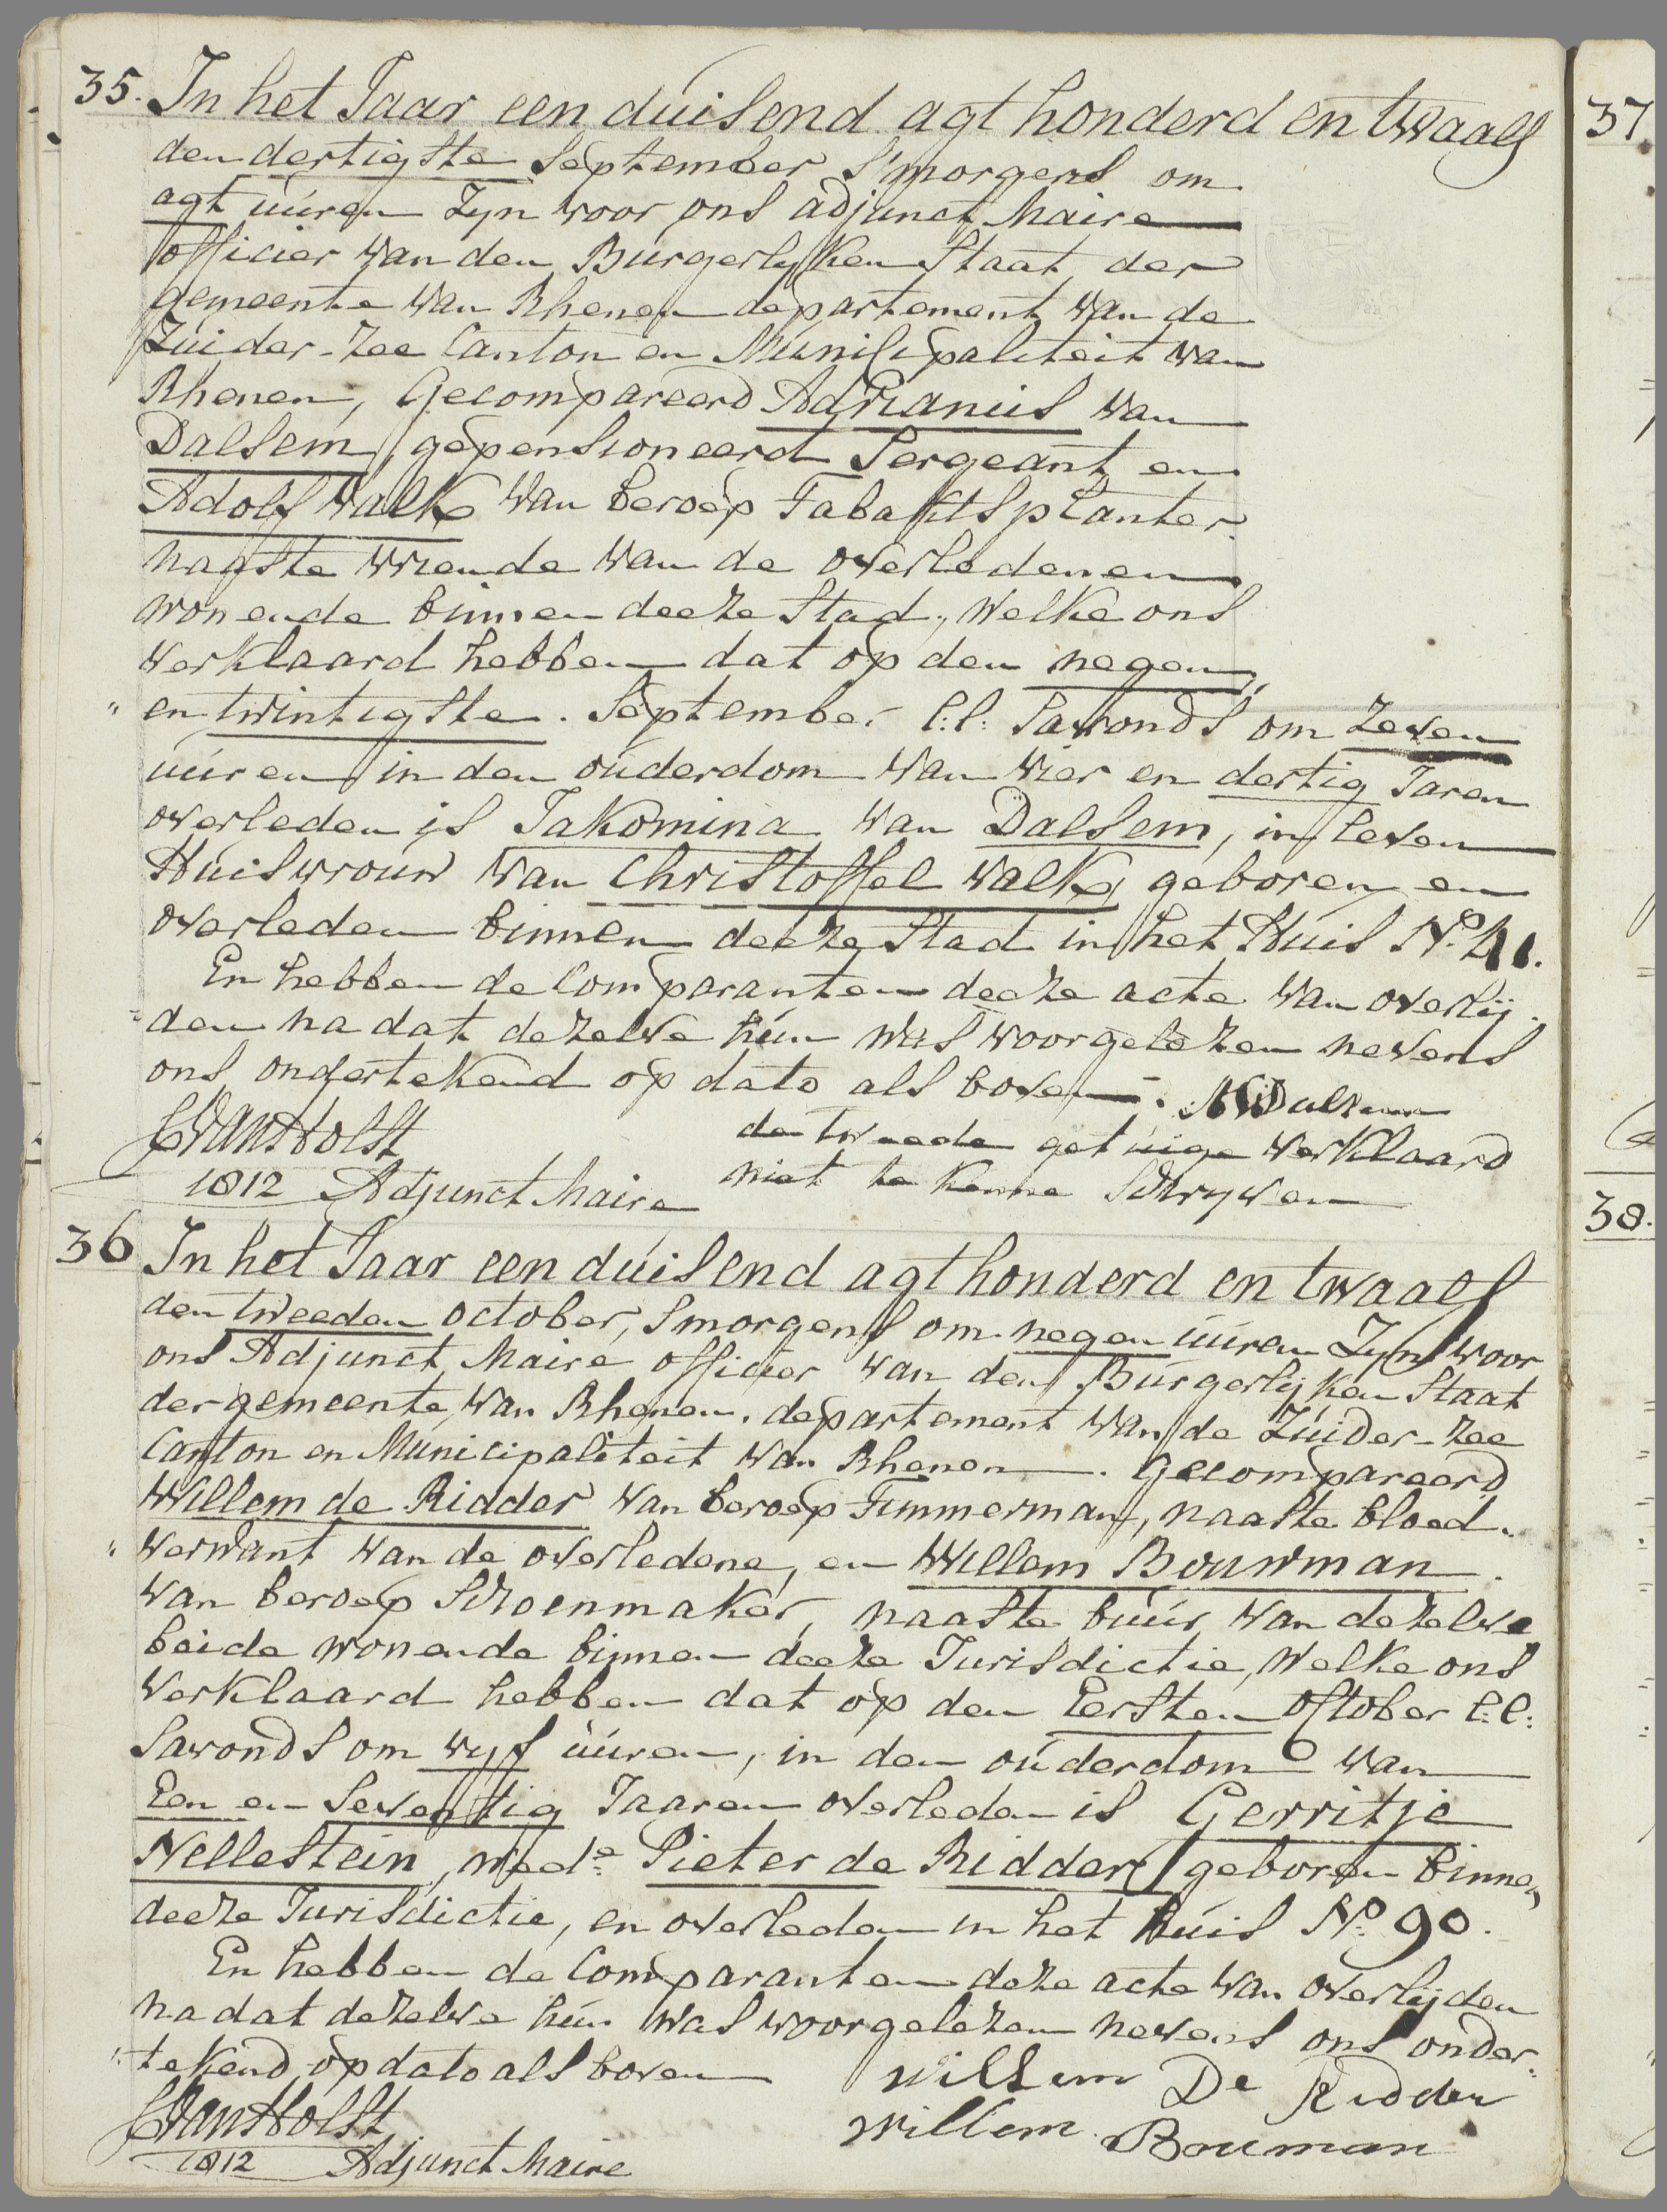 35. In het Jaar een duisend agt honderd en twaalf
den dertigste September s'morgens om
agt uuren Zyn voor ons adjunct Maire
officier van den Burgerlyken Staat der
gemeente van Rhenen departement van de
Zuider-Zee Canton en Municipaliteit van
Rhenen, Gecompareerd Adrianus van
Dalsem, gepensioneerd Sergeant en
Adolf Valk van beroep Tabaktsplanter
nagste vriende van de overledenen
wonende binnen deeze Stad, Welke ons
verklaard hebben dat op den negen
" en twintigste. September l:l: Savonds om Zeven
uuren in den ouderdom van vier en dertig Jaren
overleden is Jakomina van Dalsem, in leven
Huisvrouw van Christoffel Valk, geboren en
overleden binnen deeze Stad in het Huis No. 41.
En hebben de Comparanten deeze acte van overlij-
den na dat dezelve hun was voorgelezen nevens
ons ondertekend op dato als boven. AVDalsem
CVan Holst de tweede getuige verklaard
1812 Adjunct Maire niet te kenne Schryven
36 In het Jaar een duisend agt honderd en twaalf
den tweeden October, Smorgens om negen uuren Zyn voor
ons Adjunct Maire officier van den Burgerlijken Staat
der gemeente van Rhenen. departement van de Zuider-Zee
Canton en Municipaliteit van Rhenen. Gecompareerd
Willem de Ridder van beroep Timmerman, naaste bloed-
" verwant van de overledene, en Willem Bouwman.
van beroep Schoenmaker, naaste buur van dezelve
beide wonende binnen deeze Jurisdictie, Welke ons
Verklaard hebben dat op den Eersten October l:l:
Savonds om vyf uuren, in den ouderdom van
Een en Seventig Jaaren overleden is Gerritje
Nellestein, wede. Pieter de Ridder, geboren binnen
deeze Jurisdictie, en overleden in het Huis No. 90.
En hebben de Comparanten deze acte van overlijden
na dat dezelve hun was voorgelezen nevens ons onder-
" tekend op dato als boven Willem De Ridder
CVan Holst Willem Bouman
1812 Adjunct Maire
37
38.